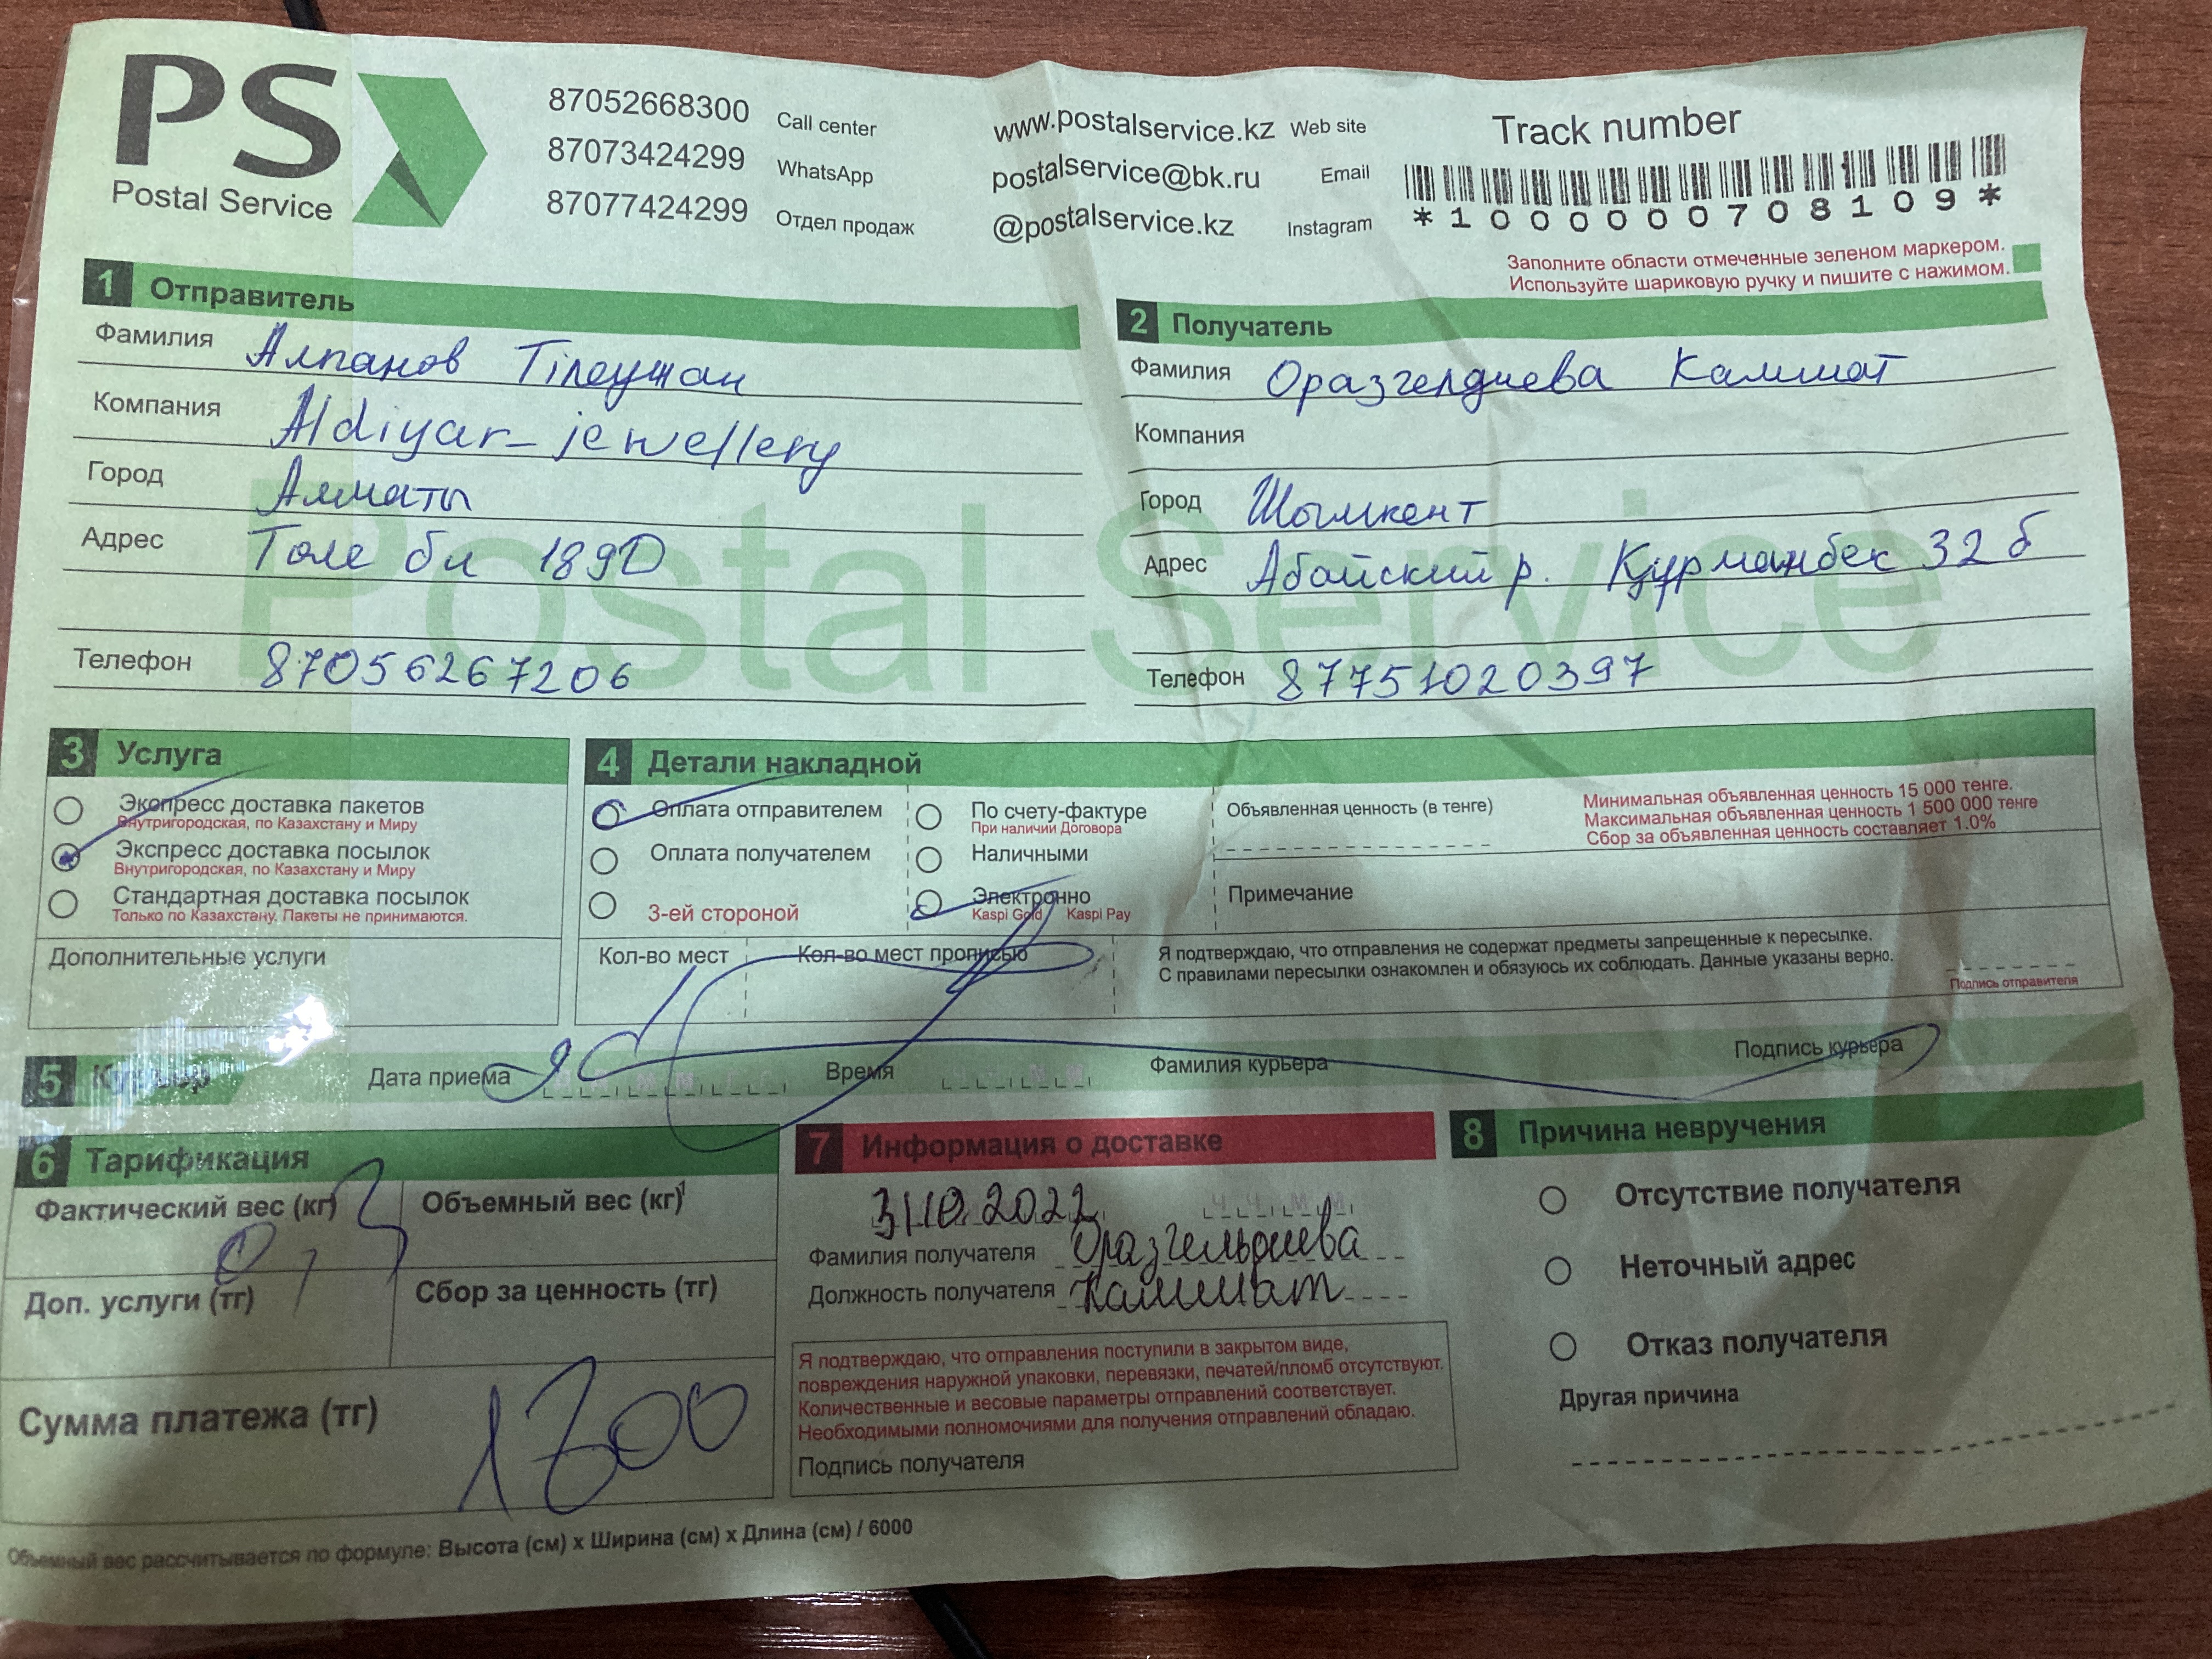 PS
Postal Service
87052668300 Call center
87073424299 WhatsApp
87077424299 Отдел продаж
www.postalservice.kz Web site
postalservice@bk.ru Email
@postalservice.kz Instagram
Track number
*100000708109*
Заполните области отмеченные зеленом маркером.
Используйте шариковую ручку и пишите с нажимом.
1 Отправитель
Фамилия Алпанов Тілеужан
Компания Aldiyar-jewellery
Город Алматы
Адрес Толе би 189D
Телефон 87056267206
2 Получатель
Фамилия Оразгелдиева Калимат
Компания
Город Шымкент
Адрес Абайский р. Курманбек 32 б
Телефон 87751020397
Postal Service
3 Услуга
Экспресс доставка пакетов
Внутригородская, по Казахстану и Миру
Экспресс доставка посылок
Внутригородская, по Казахстану и Миру
Стандартная доставка посылок
Только по Казахстану. Пакеты не принимаются.
Дополнительные услуги
4 Детали накладной
Оплата отправителем
Оплата получателем
3-ей стороной
По счету-фактуре
При наличии Договора
Наличными
Электронно
Kaspi Gold Kaspi Pay
Объявленная ценность (в тенге)
Минимальная объявленная ценность 15 000 тенге.
Максимальная объявленная ценность 1 500 000 тенге
Сбор за объявленная ценность составляет 1.0%
Примечание
Кол-во мест
Кол-во мест прописью
Я подтверждаю, что отправления не содержат предметы запрещенные к пересылке.
С правилами пересылки ознакомлен и обязуюсь их соблюдать. Данные указаны верно.
Подпись отправителя
5
Дата приема
Время
Фамилия курьера
Подпись курьера
6 Тарификация
Фактический вес (кг)
Объемный вес (кг)¹
Доп. услуги (тг)
Сбор за ценность (тг)
Сумма платежа (тг)
Объемный вес рассчитывается по формуле: Высота (см) x Ширина (см) x Длина (см) / 6000
7 Информация о доставке
31.10.2022
Фамилия получателя Оразгельдиева
Должность получателя Калимат
Я подтверждаю, что отправления поступили в закрытом виде,
повреждения наружной упаковки, перевязки, печатей/пломб отсутствуют.
Количественные и весовые параметры отправлений соответствует.
Необходимыми полномочиями для получения отправлений обладаю.
Подпись получателя
8 Причина невручения
Отсутствие получателя
Неточный адрес
Отказ получателя
Другая причина